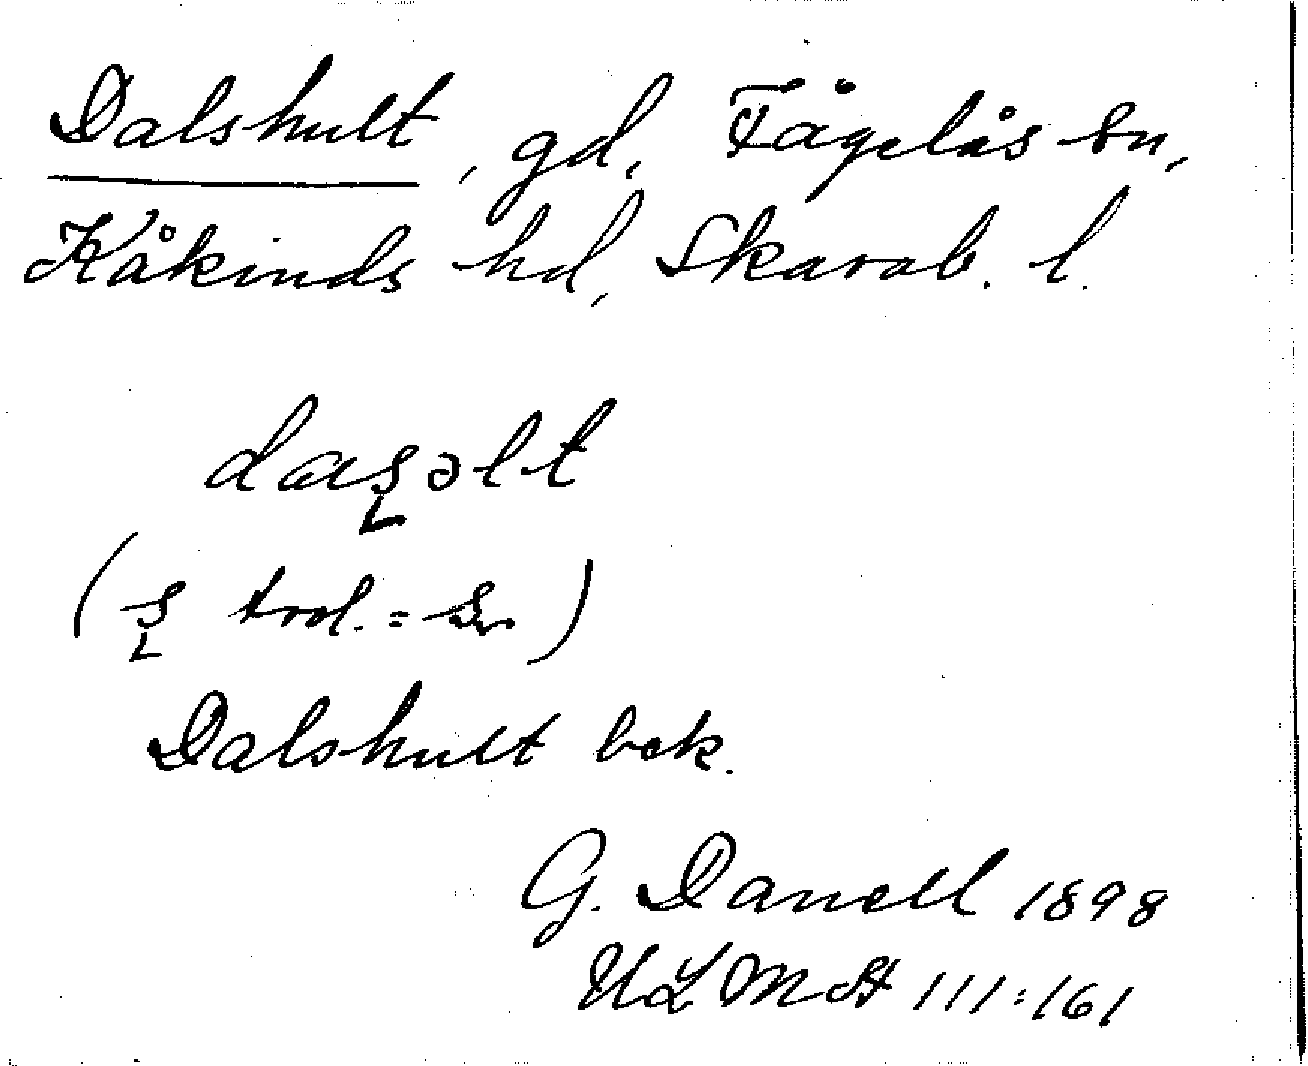 Dalshult, gd, Fågelås sn,
Kåkinds hd, Skarab. l.
daʂəlt
(ʂ trol. = )
Dalshult bok.
G. Danell 1898
ULMA 111:161